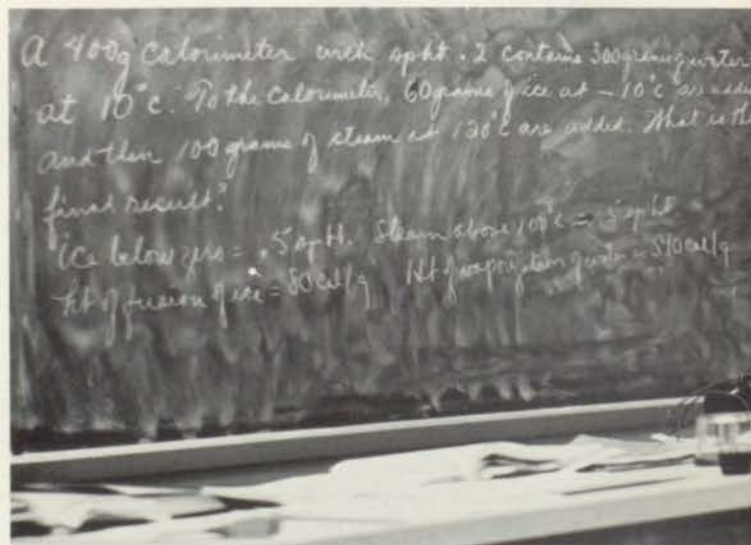 A 400g calorimeter with sp ht .2 contains 300 grams of water
at 10°C. To the calorimeter, 60 grams of ice at -10°C are added
and then 100 grams of steam at 120°C are added. What is the
final result?
ice below zero = .5 sp ht. Steam above 100°C = .5 sp ht.
ht of fusion of ice = 80 cal/g Ht of vaporization of water = 540 cal/g